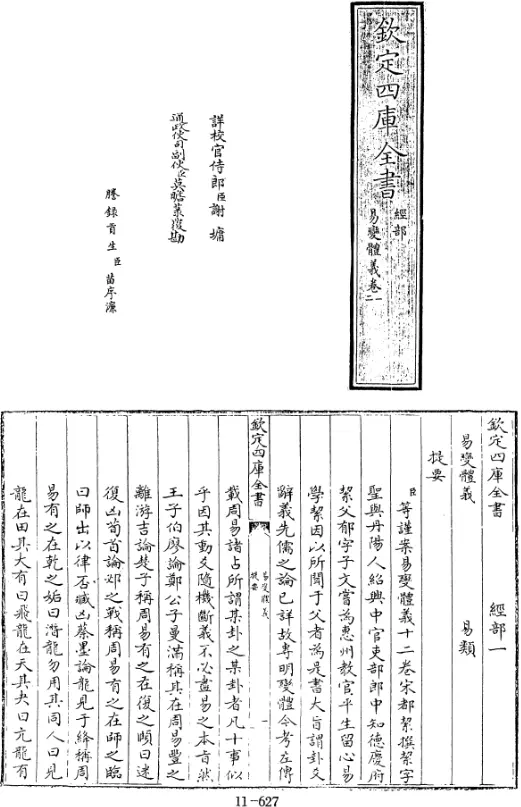 欽定四庫全書
經部
易變體義卷一二
詳校官侍郎臣謝墉
通政使司副使臣莫瞻菉覆勘
謄錄貢生臣苗序濂
欽定四庫全書 經部一
易變體義 易類
提要
臣等謹案易變體義十二卷宋都絜撰絜字
聖與丹陽人紹興中官吏部郎中知德慶府
絜父郁字子文嘗為惠州教官平生留心易
學絜因以所聞于父者為是書大旨謂卦爻
辭義先儒之論已詳故專明變體今考左傳
欽定四庫全書
易變體義
提要
一
載周易諸占所謂某卦之某卦者凡十事似
乎因其動爻隨機斷義不必盡易之本旨然
王子伯廖論鄭公子曼滿稱其在周易豐之
離游吉論楚子稱周易有之在復之頤曰迷
復凶荀首論邲之戰稱周易有之在師之臨
曰師出以律否臧凶蔡墨論龍見于絳稱周
易有之在乾之姤曰潛龍勿用其同人曰見
龍在田其大有曰飛龍在天其夬曰亢龍有
11-627